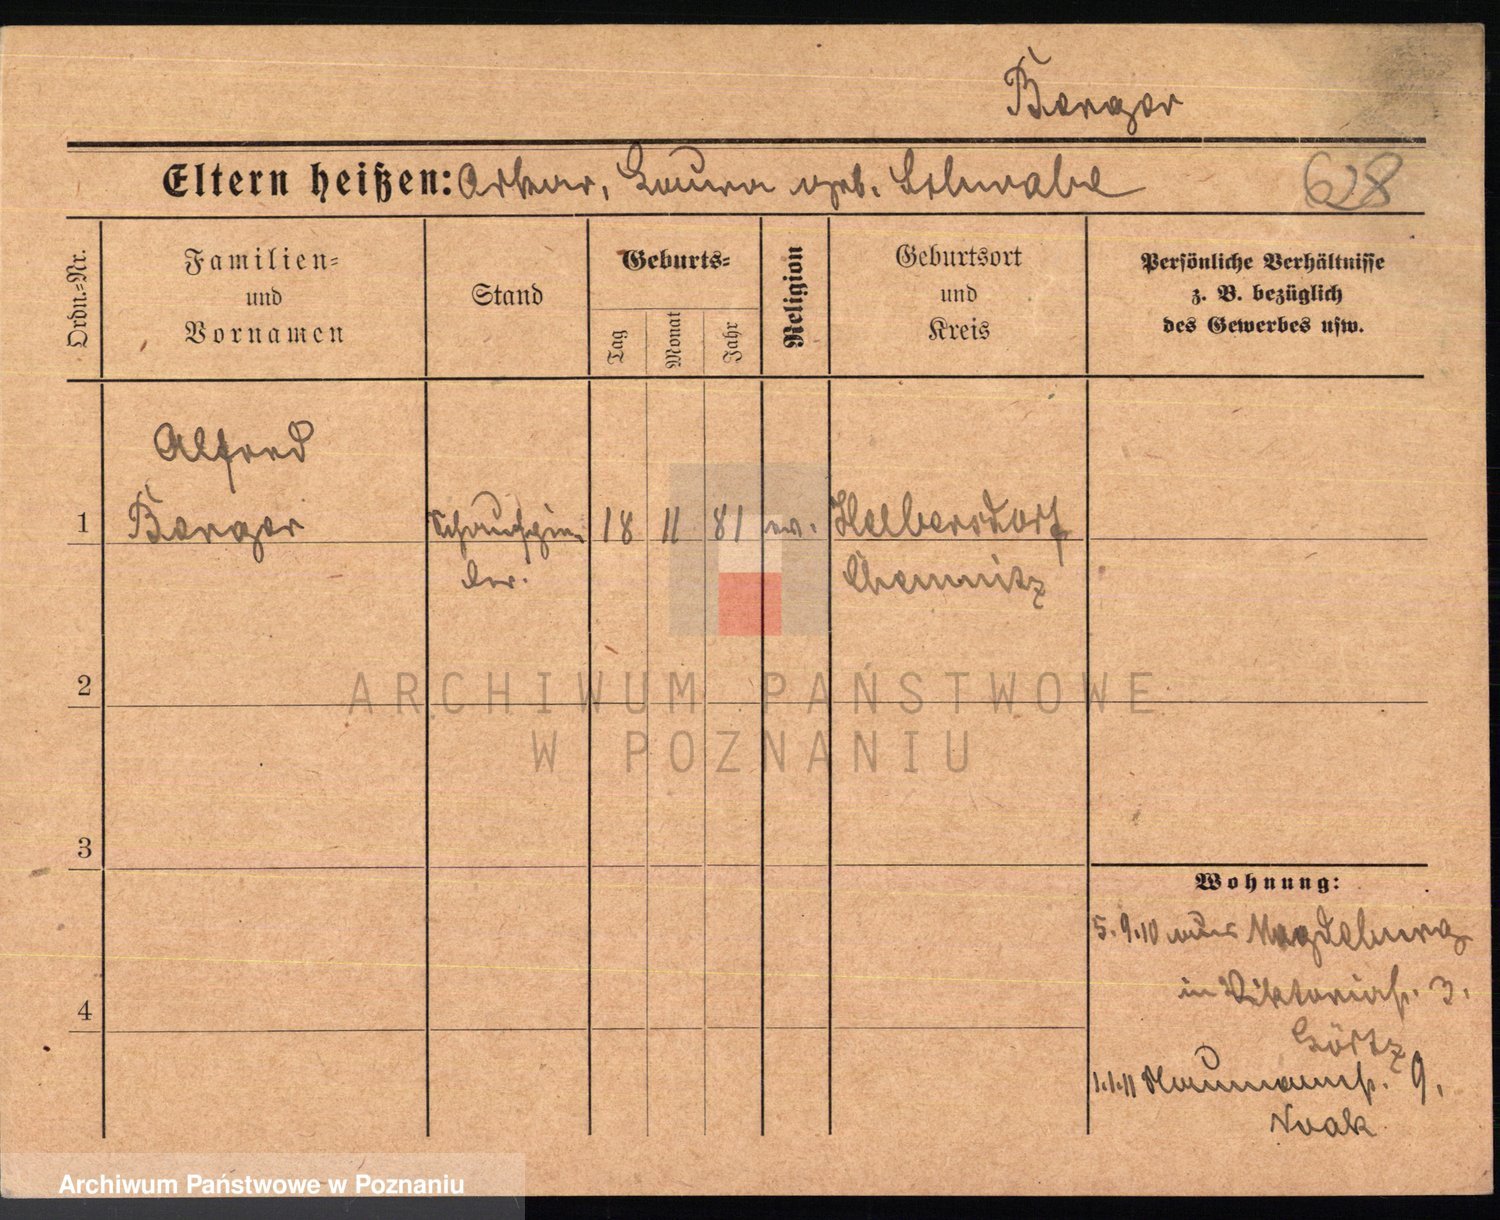 Berger
Eltern heißen: Oskar, Laura geb. Schwabe
628
Ordn.=Nr.
Familien=
und
Vornamen
Stand
Geburts=
Tag
Monat
Jahr
Religion
Geburtsort
und
Kreis
Persönliche Verhältnisse
z. B. bezüglich
des Gewerbes usw.
Alfred
1 Berger Schauspie- 18 11 81 ev. Helbersdorf
ler. Chemnitz
2
3
4
Wohnung:
5.9.10 aus Magdeburg
in Viktoriastr. 3.
Görtz
1.1.11 Naumannstr. 9.
Noak
ARCHIWUM PAŃSTWOWE
W POZNANIU
Archiwum Państwowe w Poznaniu